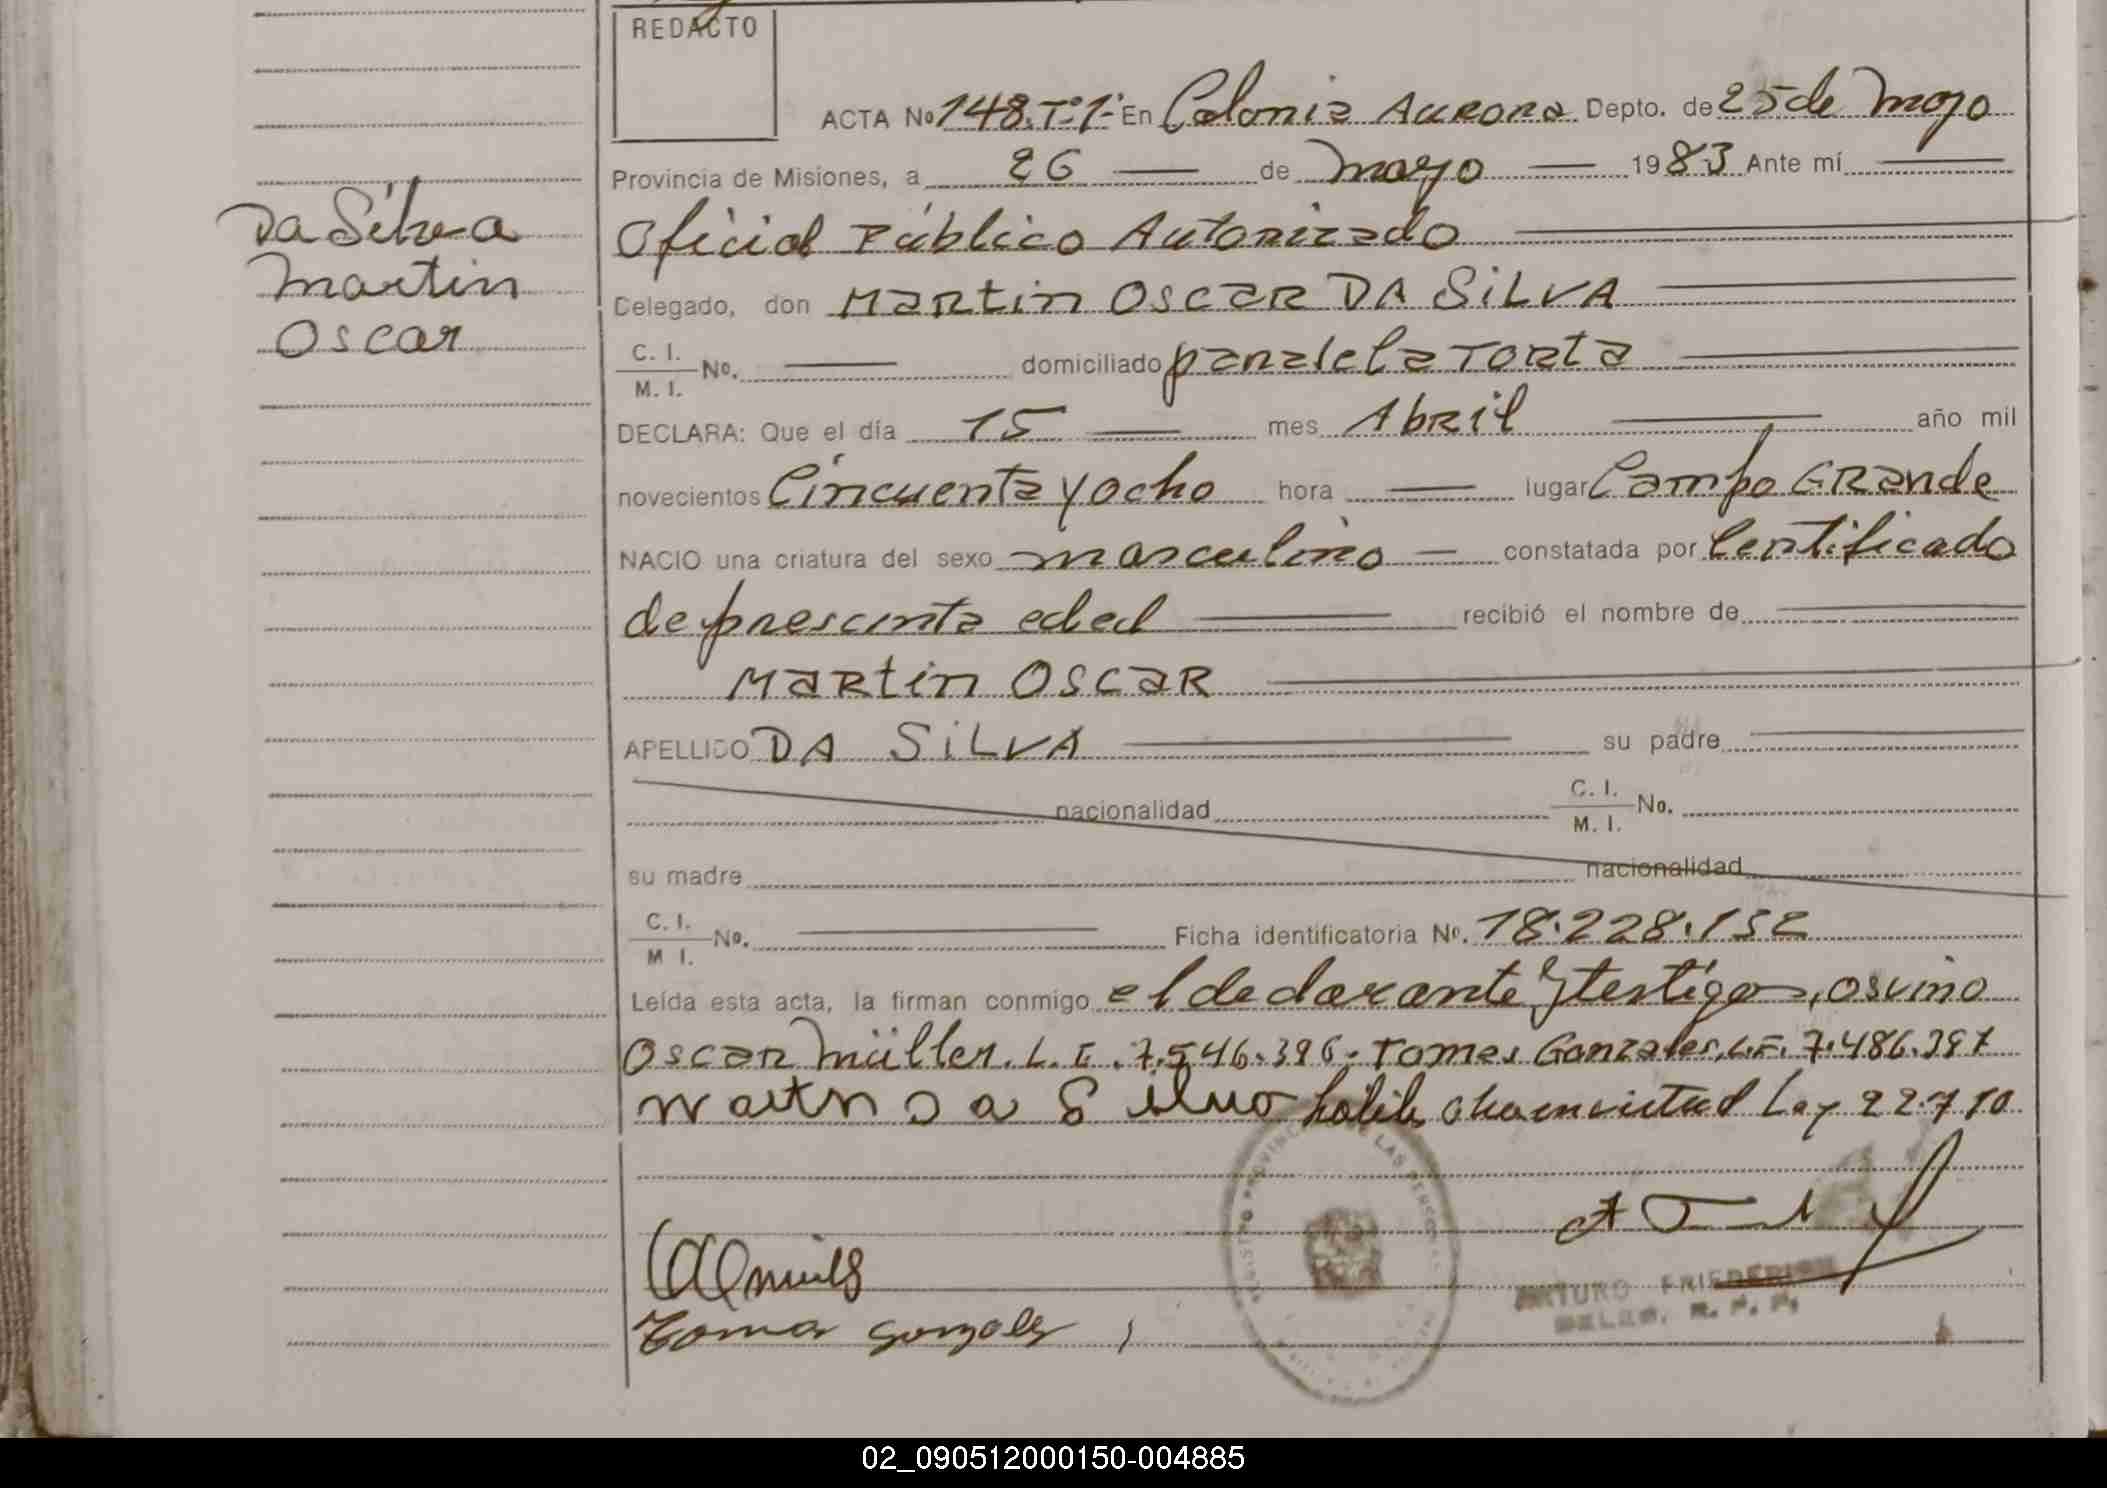 REDACTO
ACTA No 148.Tº1º En Colonia Aurora Depto. de 25 de Mayo
Provincia de Misiones, a 26 de mayo 1983 Ante mí
Oficial Público Autorizado
Da Silva
Martin
Oscar
Delegado, don Martin Oscar DA SILVA
C. I.
M. I. No. domiciliado paralela Torta
DECLARA: Que el día 15 mes Abril año mil
novecientos Cincuenta y ocho hora lugar Campo Grande
NACIO una criatura del sexo masculino constatada por Certificado
de prescinta edad recibió el nombre de
Martin Oscar
APELLIDO DA SILVA su padre
nacionalidad C. I.
M. I. No.
su madre nacionalidad
C. I.
M I. No. Ficha identificatoria No. 18.228.152
Leída esta acta, la firman conmigo el declarante y testigos, Osvino
Oscar Müller. L.E. 7.546.396. Tomas Gonzales, L.E. 7.486.397
Ley 22.710
Tomas Gonzales
ARTURO
02_090512000150-004885